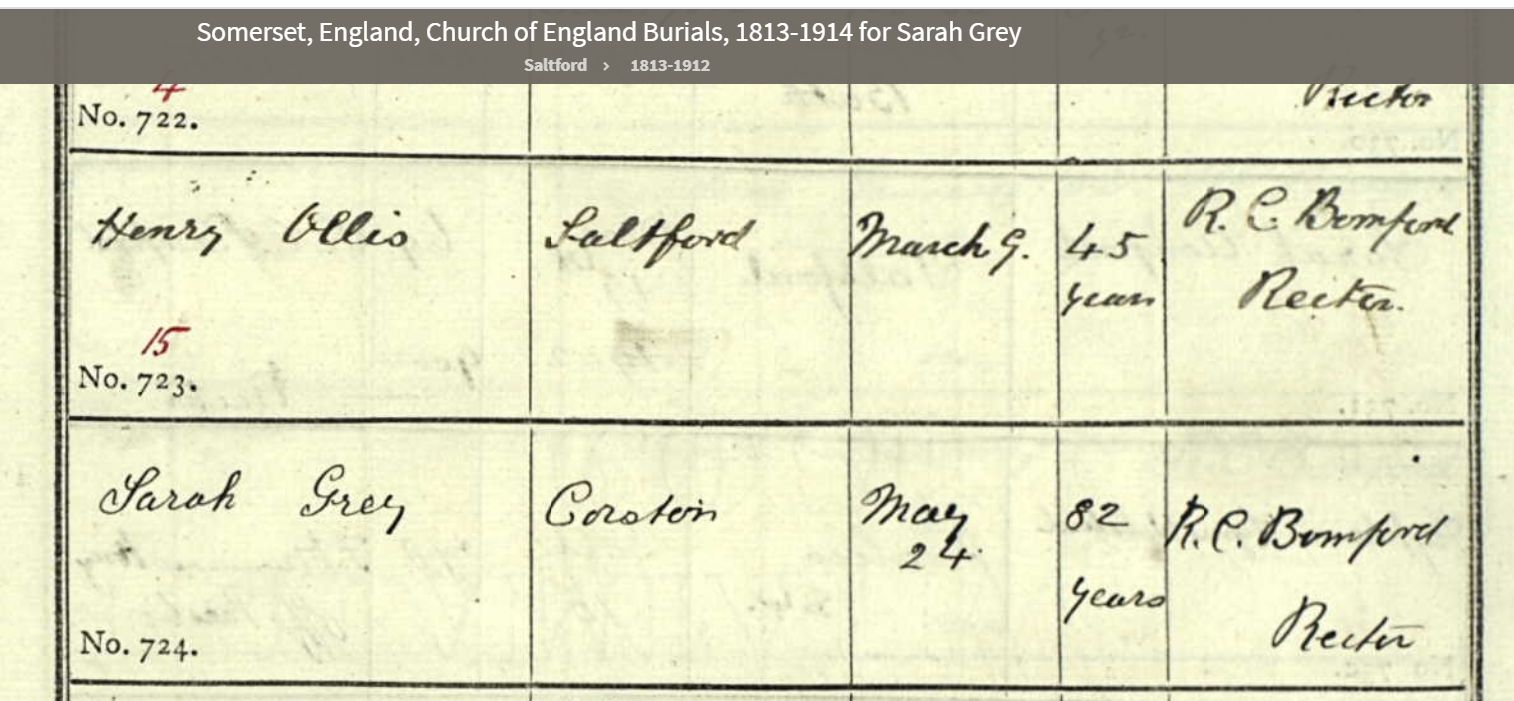 Somerset, England, Church of England Burials, 1813-1914 for Sarah Grey
Saltford > 1813-1912
4
Rector
No. 722.
Henry Ollis Saltford March 9. 45 years R. C. Bomford Rector.
15
No. 723.
Sarah Grey Corston May 24. 82 years R. C. Bomford Rector
No. 724.